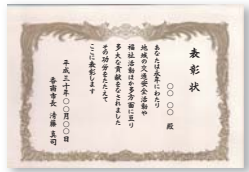 表彰状
○○ ○○ 殿
あなたは永年にわたり
地域の交通安全活動や
福祉活動ほか多方面に亘り
多大な貢献をなされました
その功労をたたえて
ここに表彰します
平成三十年○○月○○日
香南市長 清藤真司